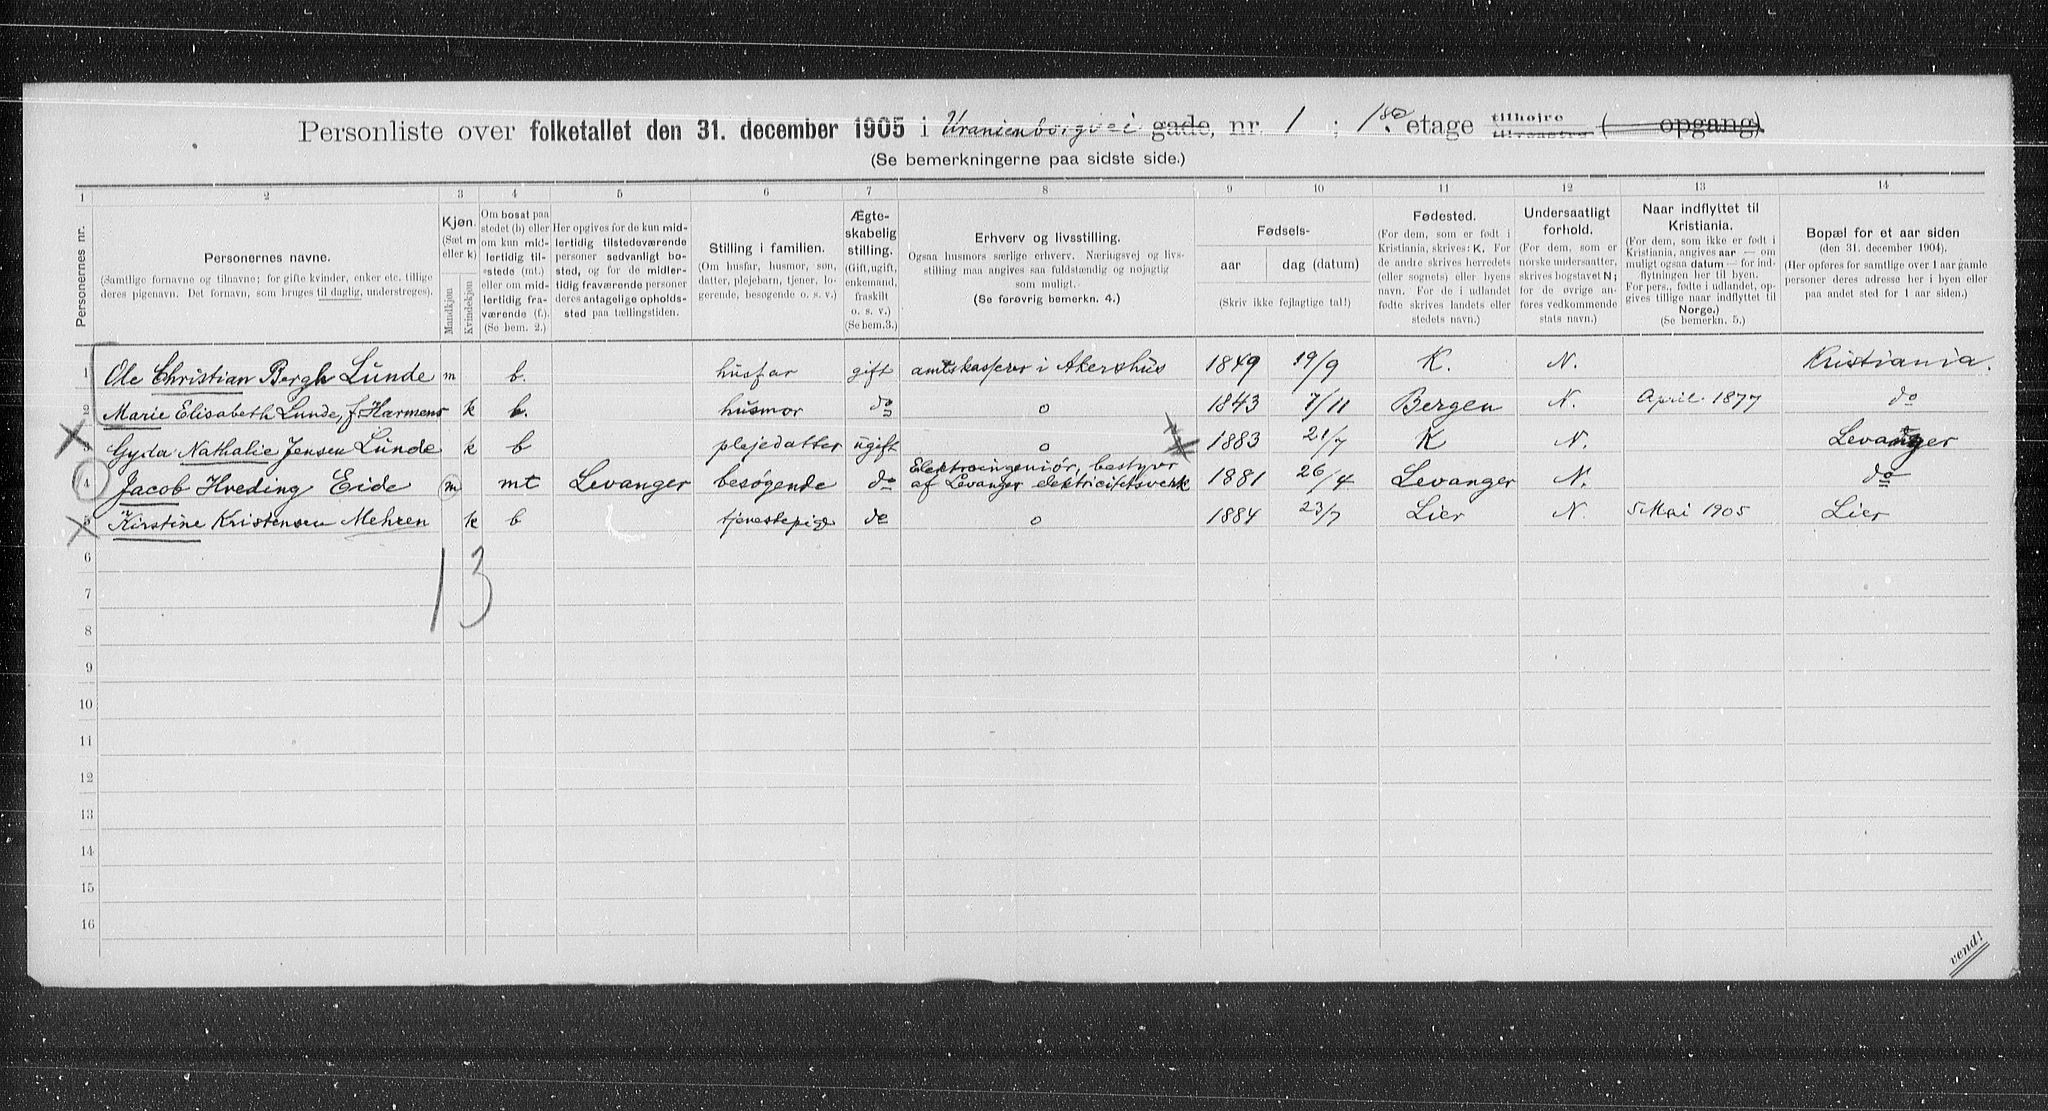 Personliste over folketallet den 31. december 1905 i Uranienborgvei gade, nr. 1 ; 1ste etage tilhøjre tilvenstre ( opgang)
(Se bemerkningerne paa sidste side.)
1 2 3 4 5 6 7 8 9 10 11 12 13 14
Personernes nr.
Personernes navne.
(Samtlige fornavne og tilnavne; for gifte kvinder, enker etc. tillige
deres pigenavn. Det fornavn, som bruges til daglig, understreges).
Kjøn.
(Sæt m
eller k)
Mandkjøn
Kvindekjøn
Om bosat paa
stedet (b) eller
om kun mid-
lertidig til-
stede (mt.)
eller om mid-
lertidig fra-
værende (f.).
(Se bem. 2.)
Her opgives for de kun mid-
lertidig tilstedeværende
personer sedvanligt bo-
sted, og for de midler-
tidig fraværende personer
deres antagelige opholds-
sted paa tællingstiden.
Stilling i familien.
(Om husfar, husmor, søn,
datter, plejebarn, tjener, lo-
gerende, besøgende o. s. v.)
Ægte-
skabelig
stilling.
(Gift, ugift,
enkemand,
fraskilt
o. s. v.)
(Se bem. 3.)
Erhverv og livsstilling.
Ogsaa husmors særlige erhverv. Næringsvej og livs-
stilling maa angives saa fuldstændig og nøjagtig
som muligt.
(Se forøvrig bemerkn. 4.)
Fødsels-
aar
dag (datum)
(Skriv ikke fejlagtige tal!)
Fødested.
(For dem, som er født i
Kristiania, skrives: K. For
de andre skrives herredets
(eller sognets) eller byens
navn. For de i udlandet
fødte skrives landets eller
stedets navn.)
Undersaatligt
forhold.
(For dem, som er
norske undersaatter,
skrives bogstavet N;
for de øvrige an-
føres vedkommende
stats navn.)
Naar indflyttet til
Kristiania.
(For dem, som ikke er født i
Kristiania, angives aar — om
muligt ogsaa datum — for ind-
flytningen her til byen.
For pers., fødte i udlandet, op-
gives tillige naar indflyttet til
Norge.)
(Se bemerkn. 5.)
Bopæl for et aar siden
(den 31. december 1904).
(Her opføres for samtlige over 1 aar gamle
personer deres adresse her i byen eller
paa andet sted for 1 aar siden.)
1 Ole Christian Bergh Lunde m b. husfar gift amtskasserer i Akershus 1849 19/9 K. N. Kristiania.
2 Marie Elisabeth Lunde, f. Harmens k b. husmor do o 1843 7/11 Bergen N. April 1877 do
3 Gyda Nathalie Jensen Lunde k b plejedatter ugift o 1883 21/7 K N. Levanger
4 Jacob Hveding Eide m mt Levanger besøgende do Elektroingeniør, bestyrer
af Levanger elektricitetsverk 1881 26/4 Levanger N. do
5 Kirstine Kristensen Mehren k b tjenestepige do o 1884 23/7 Lier N. 5 Mai 1905 Lier
1 3
6
7
8
9
10
11
12
13
14
15
16
vend!